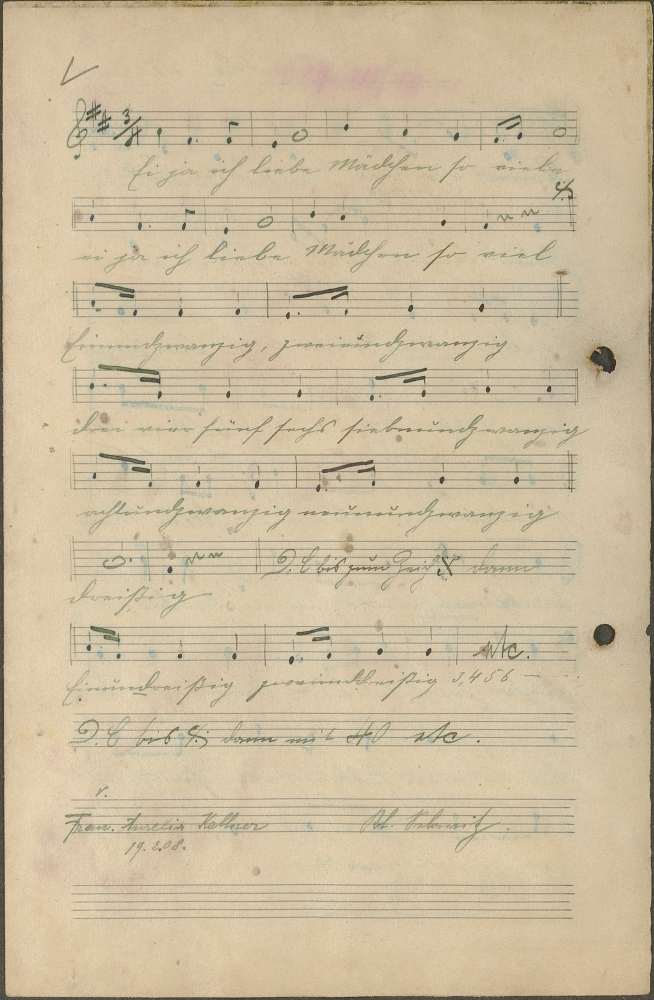 3/4
Ei ja ich liebe Mädchen so viele
ei ja ich liebe Mädchen so viel
Einundzwanzig, zweiundzwanzig
drei vier fünf sechs siebenundzwanzig
achtundzwanzig neunundzwanzig
D. C bis zum Zeich dann
dreißig
etc.
Einunddreißig zweiunddreißig 3,456 —
D. C bis dann mit 40 etc.
v.
Frau. Aurelia Kellner
19. 2.08.